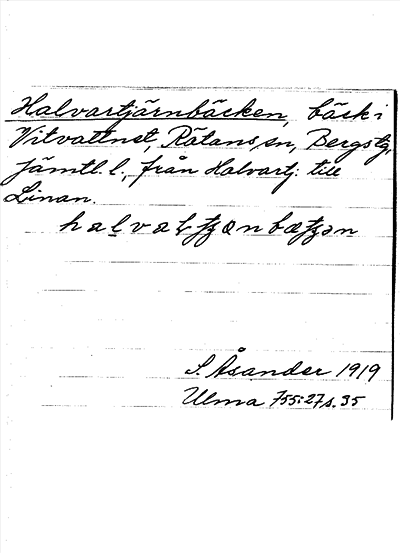 Halvartjärnbäcken, bäck i
Vitvattnet, Rätans sn, Bergs tg,
Jämtl. l., från Halvartj. till
Linan.
S. Åsander 1919
Ulma 755:27 s. 35